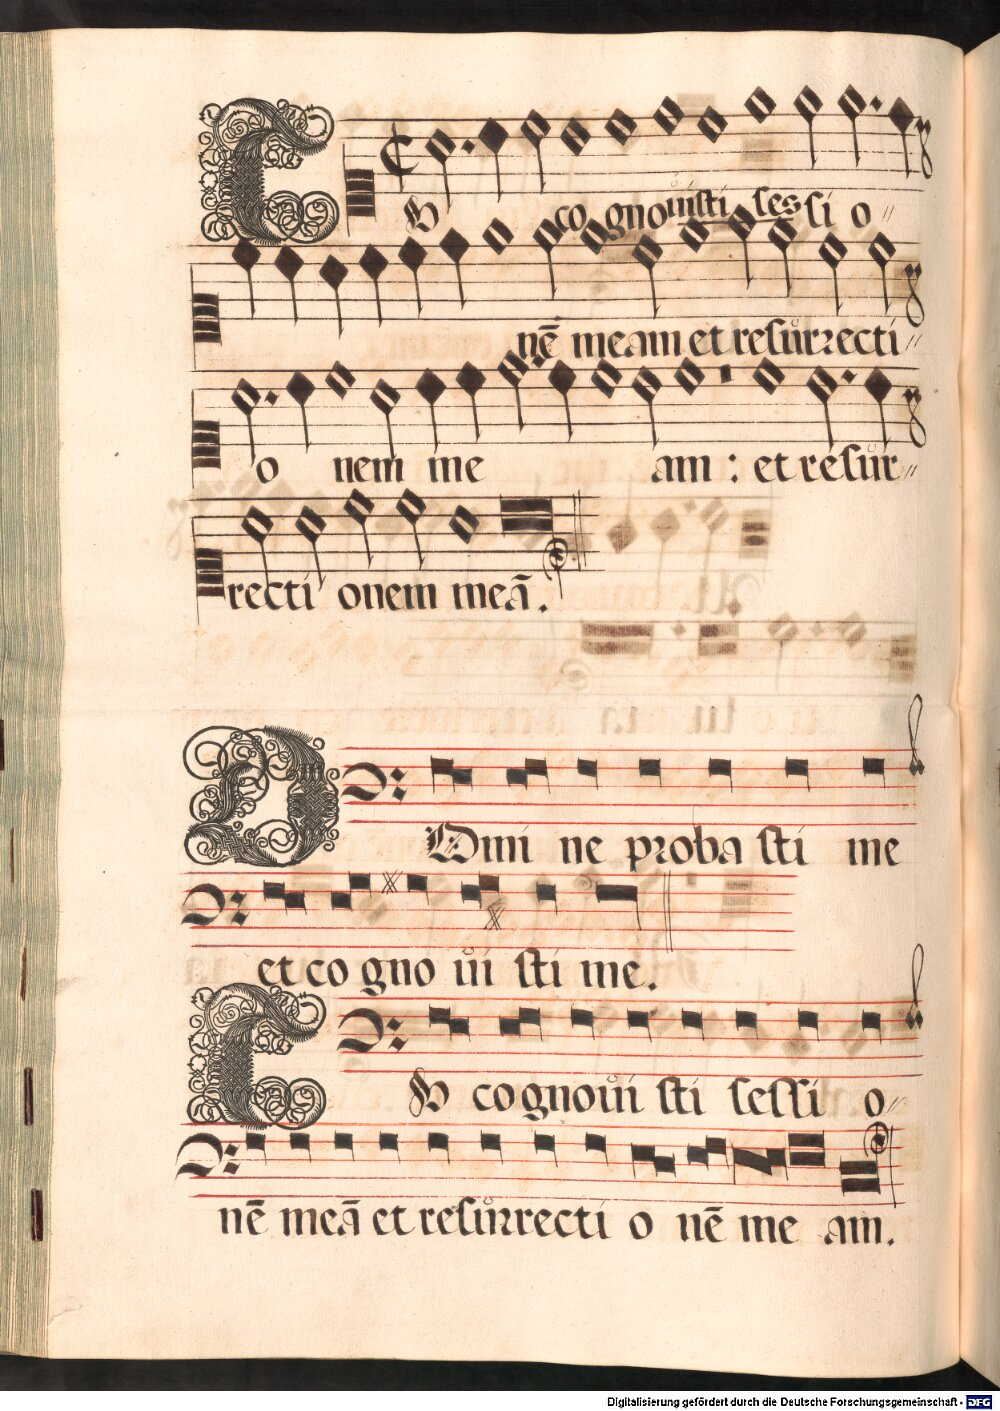 Tu cognouisti sessi o
nē meam et resurrecti
o nem me am : et resur
recti onem meā.
Domi ne proba sti me
et co gno ui sti me.
Tu cognoui sti sessi o
nē meā et resurrecti o nē me am.
Digitalisierung gefördert durch die Deutsche Forschungsgemeinschaft - DFG